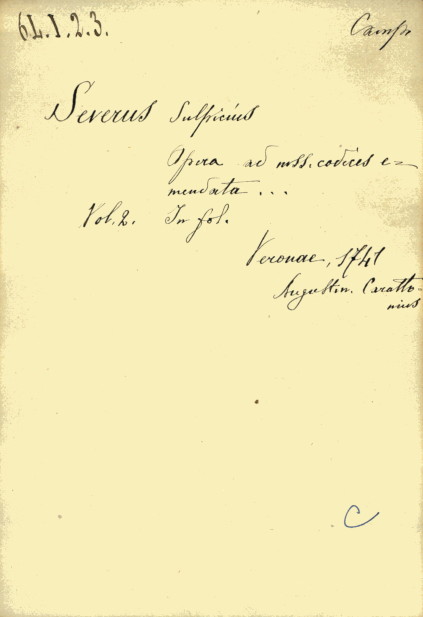 6L.I.2.3.
Camp.
Severus Sulpicius
Opera ad mss. codices e=
mendata ...
Vol. 2. In fol.
Veronae, 1741
Augustin. Caratto-
nius
C